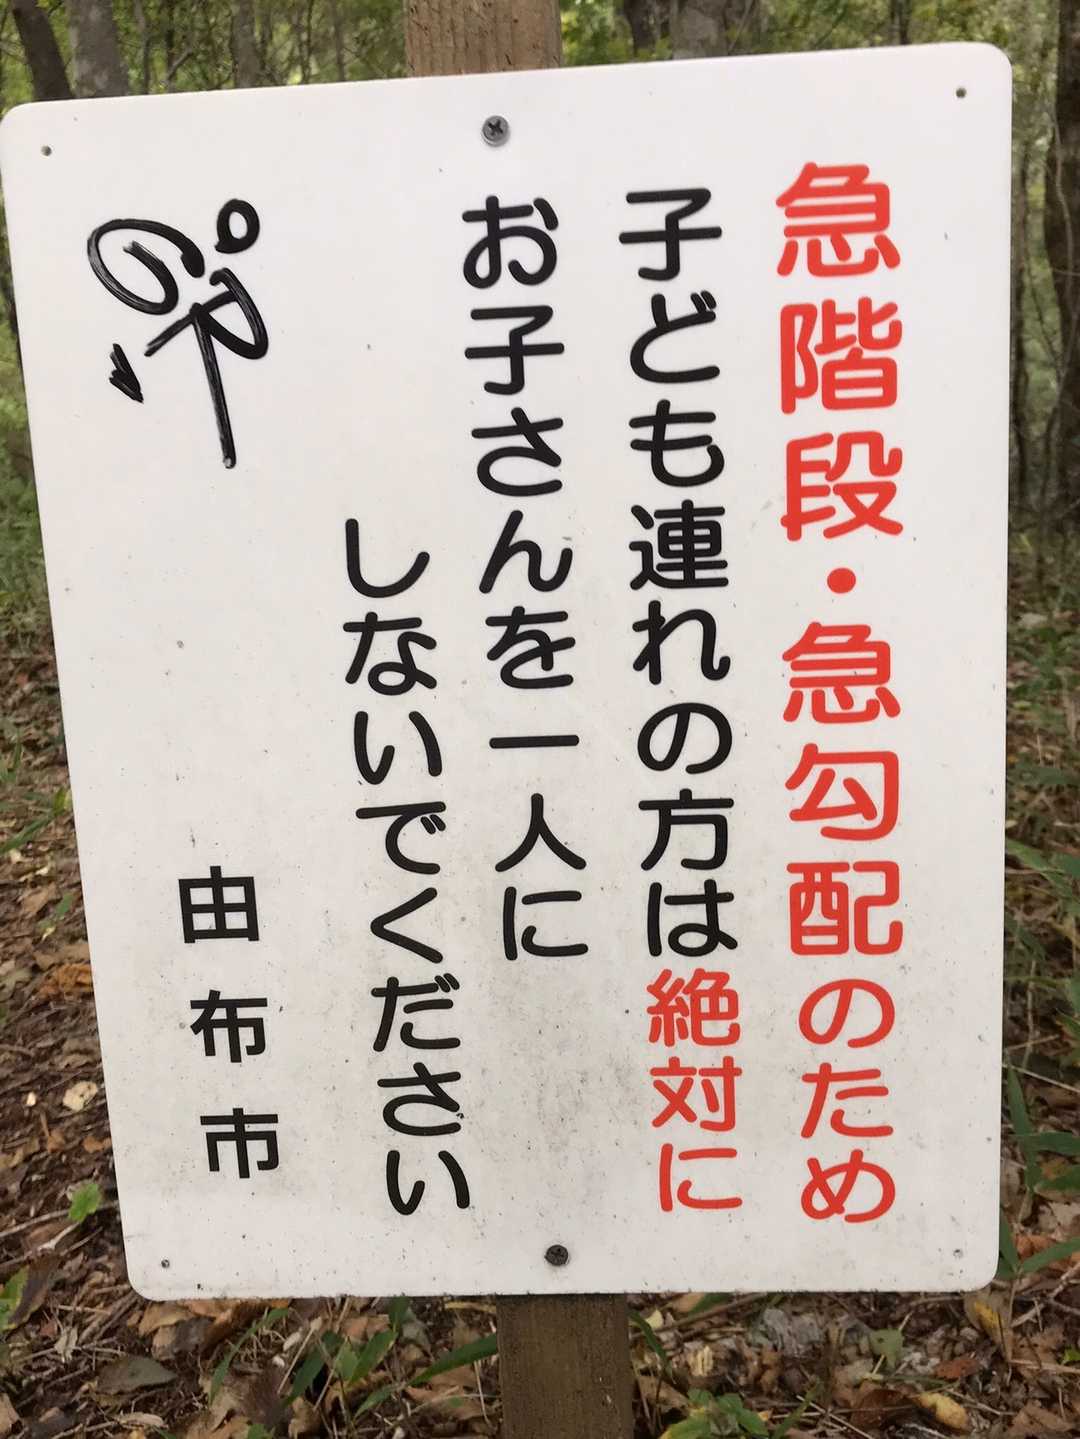 急階段・急勾配のため
子ども連れの方は絶対に
お子さんを一人に
しないでください
由布市